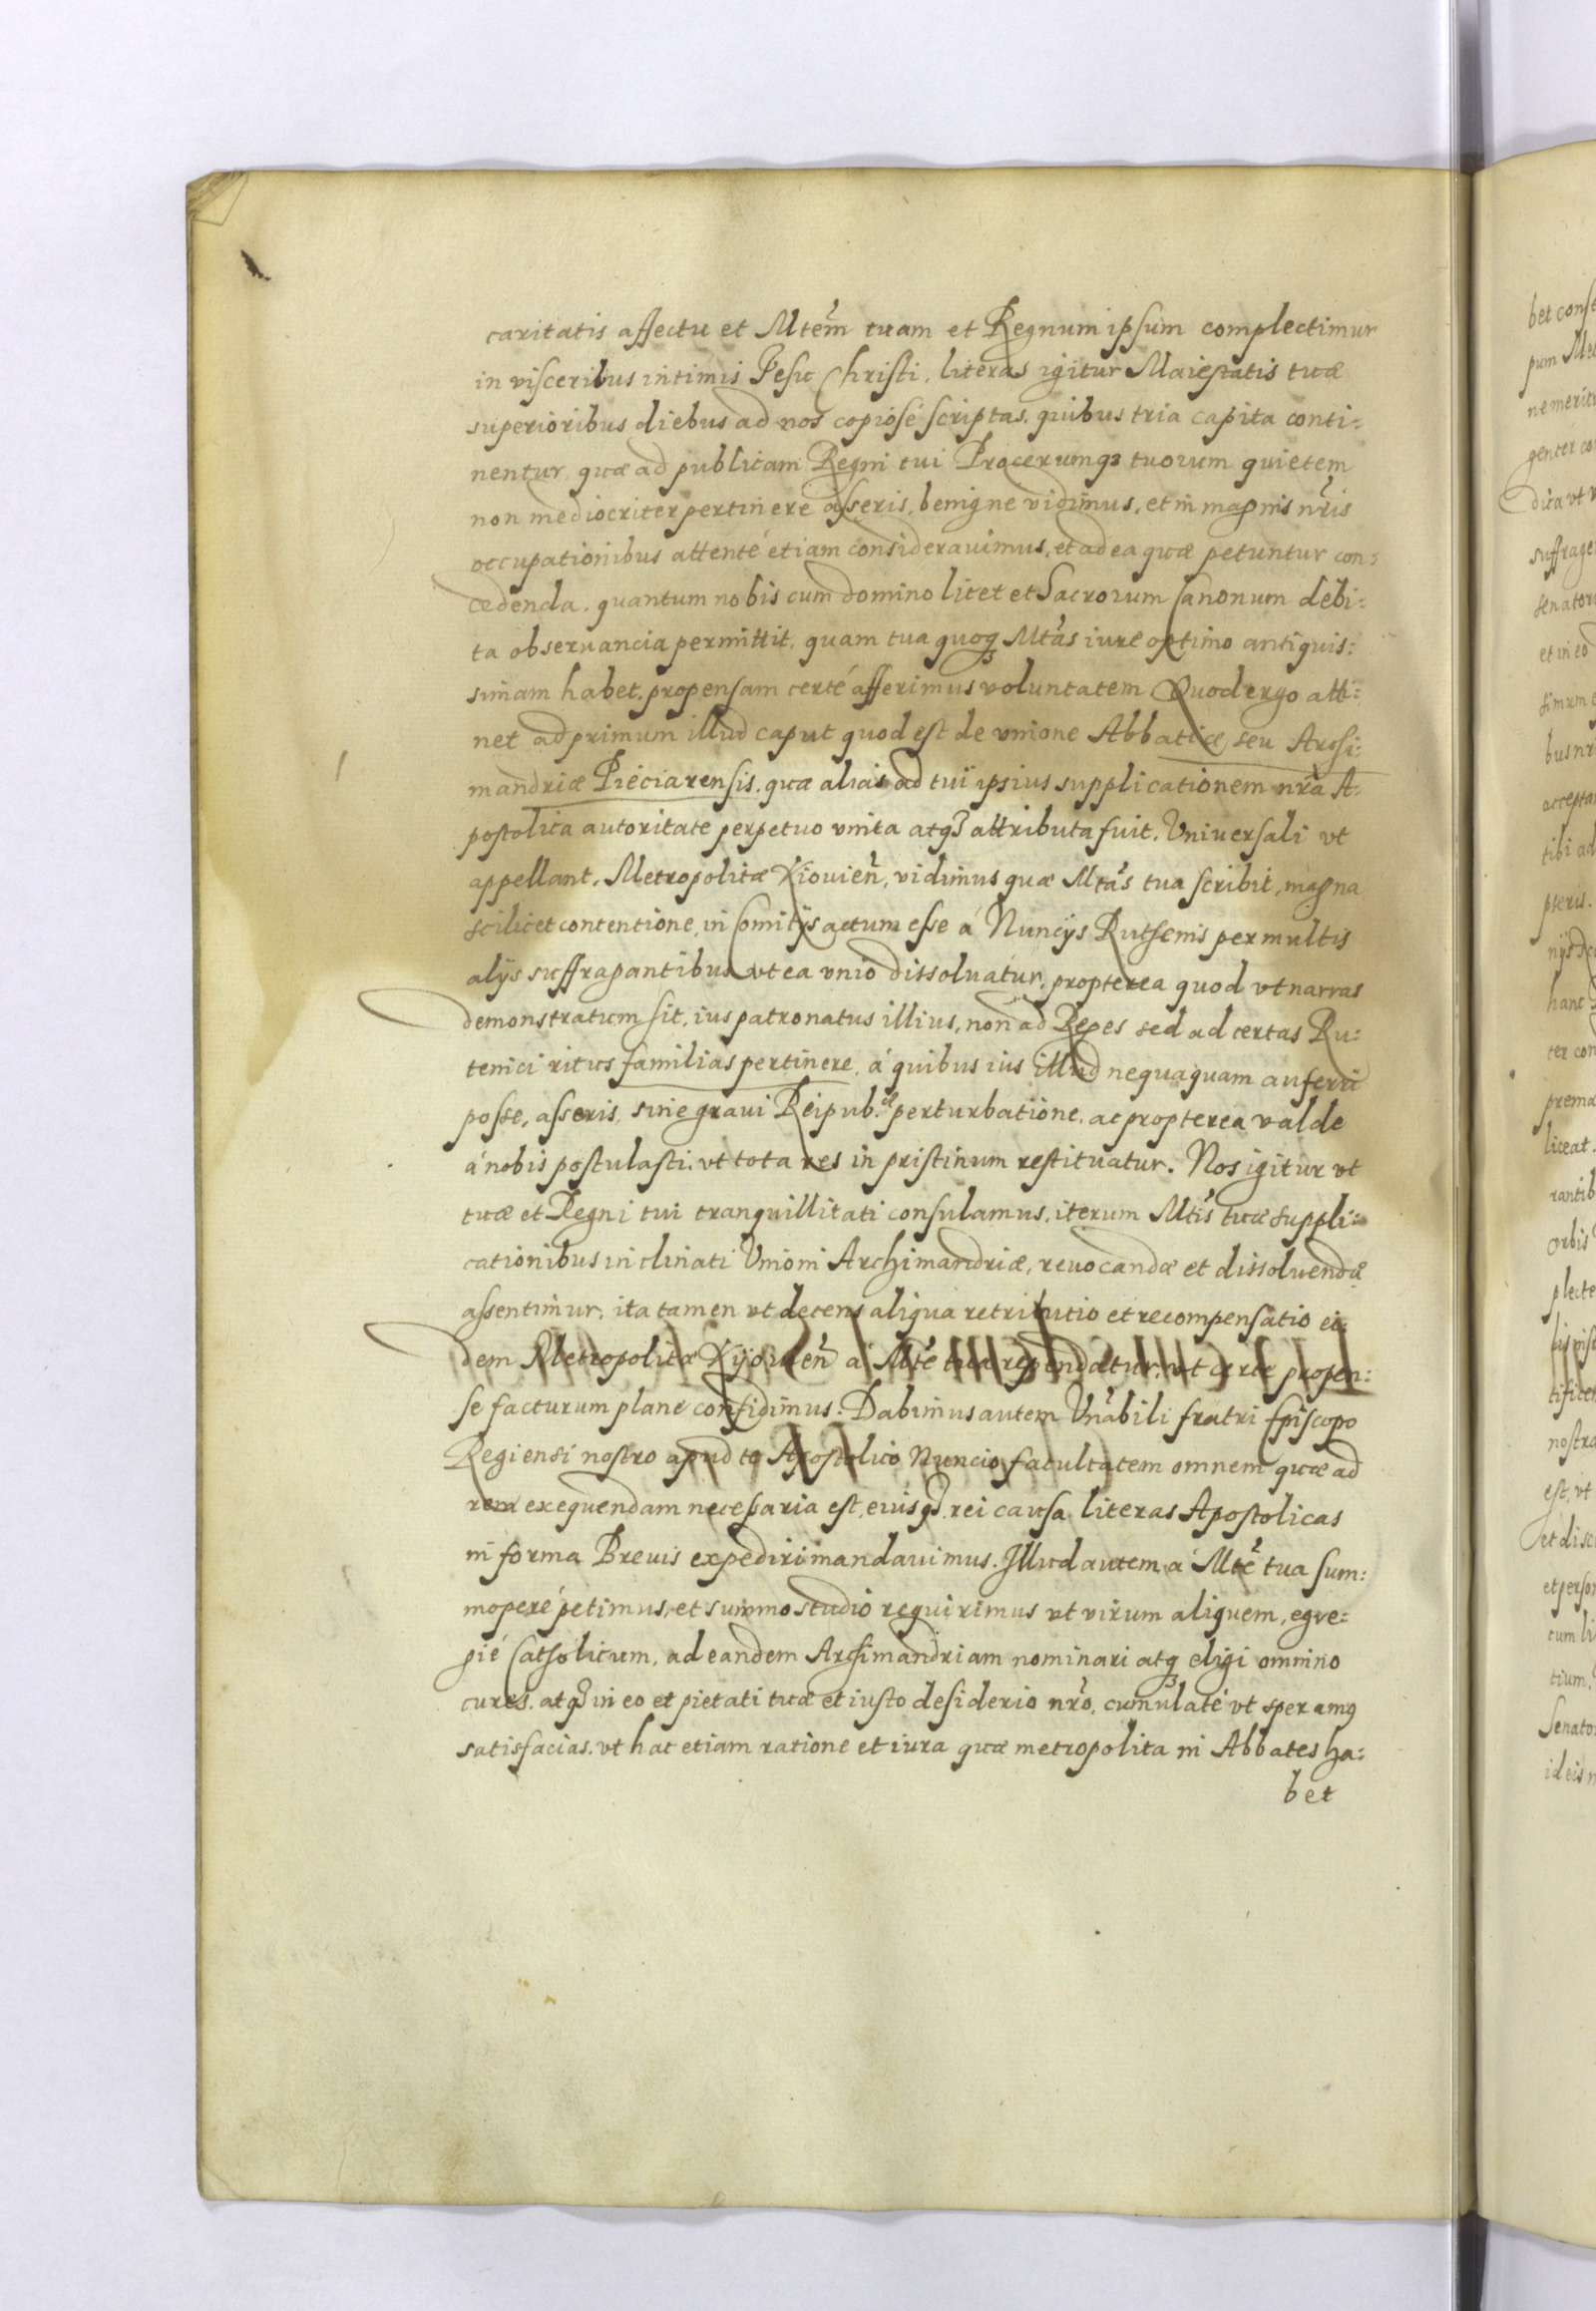 caritatis affectu et Mtem̃ tuam et Regnum ipsum complectimur
in visceribus intimis Jesu Christi, literas igitur Maiestatis tuæ
superioribus diebus ad nos copiosé scriptas, quibus tria capita conti:
nentur, quæ ad publicam Regni tui Procerumq3 tuorum quietem
non mediocriter pertinere asseris, benigne vidimus, et in magnis nr̃is
occupationibus attenté etiam considerauimus, et ad ea quæ petuntur con:
cedenda, quantum nobis cum domino licet et Sacrorum Canonum debi:
ta obseruancia permittit, quam tua quoq3 Mtas̃ iure optimo antiquis:
simam habet, propensam certé afferimus voluntatem Quod ergo atti:
net ad primum illud caput quod est de vnione Abbatiæ seu Archi:
mandriæ Pieciarensis, quæ aliás ad tui ipsius supplicationem nrã A:
postolica autoritate perpetuo vnita atq3 attributa fuit, Vniuersali vt
appellant, Metropolitæ Kiouieñ, vidimus quæ Mtas̃ tua scribit, magna
scilicet contentione, in Comitijs actum esse á Nuncijs Ruthenis permultis
alijs suffragantibus vt ea vnio dissoluatur, propterea quod vt narras
demonstratum sit, ius patronatus illius, non ad Reges sed ad certas Ru:
tenici ritus familias pertinere, á quibus ius illud nequaquam auferri
posse, asseris, sine graui Reipub.æ perturbatione, ac propterea valde
á nobis postulasti, vt tota res in pristinum restituatur. Nos igitur vt
tuæ et Regni tui tranquillitati consulamus, iterum Mtis̃ tuæ suppli:
cationibus inclinati Vnioni Archimandriæ, reuocandæ et dissoluendæ
assentimur, ita tamen vt decens aliqua retributio et recompensatio ei:
dem Metropolitæ Kijouieñ a Mtẽ tua rependatur, vt certe propen:
se facturum plane confidimus. Dabimus autem Vnãbili fratri Episcopo
Regiensi nostro apud te Apostolico Nuncio facultatem omnem quæ ad
rem exequendam necessaria est, eiusq3 rei causa literas Apostolicas
in forma Breuis expediri mandauimus. Illud autem á Mtẽ tua sum:
moperé petimus, et summo studio requirimus vt virum aliquem, egre:
gié Catholicum, ad eandem Archimandriam nominari atq3 eligi omnino
cures, atq3 in eo et pietati tuæ et iusto desiderio nr̃o, cumulaté vt speramq
satisfacias, vt hac etiam ratione et iura quæ metropolita in Abbates ha:
bet